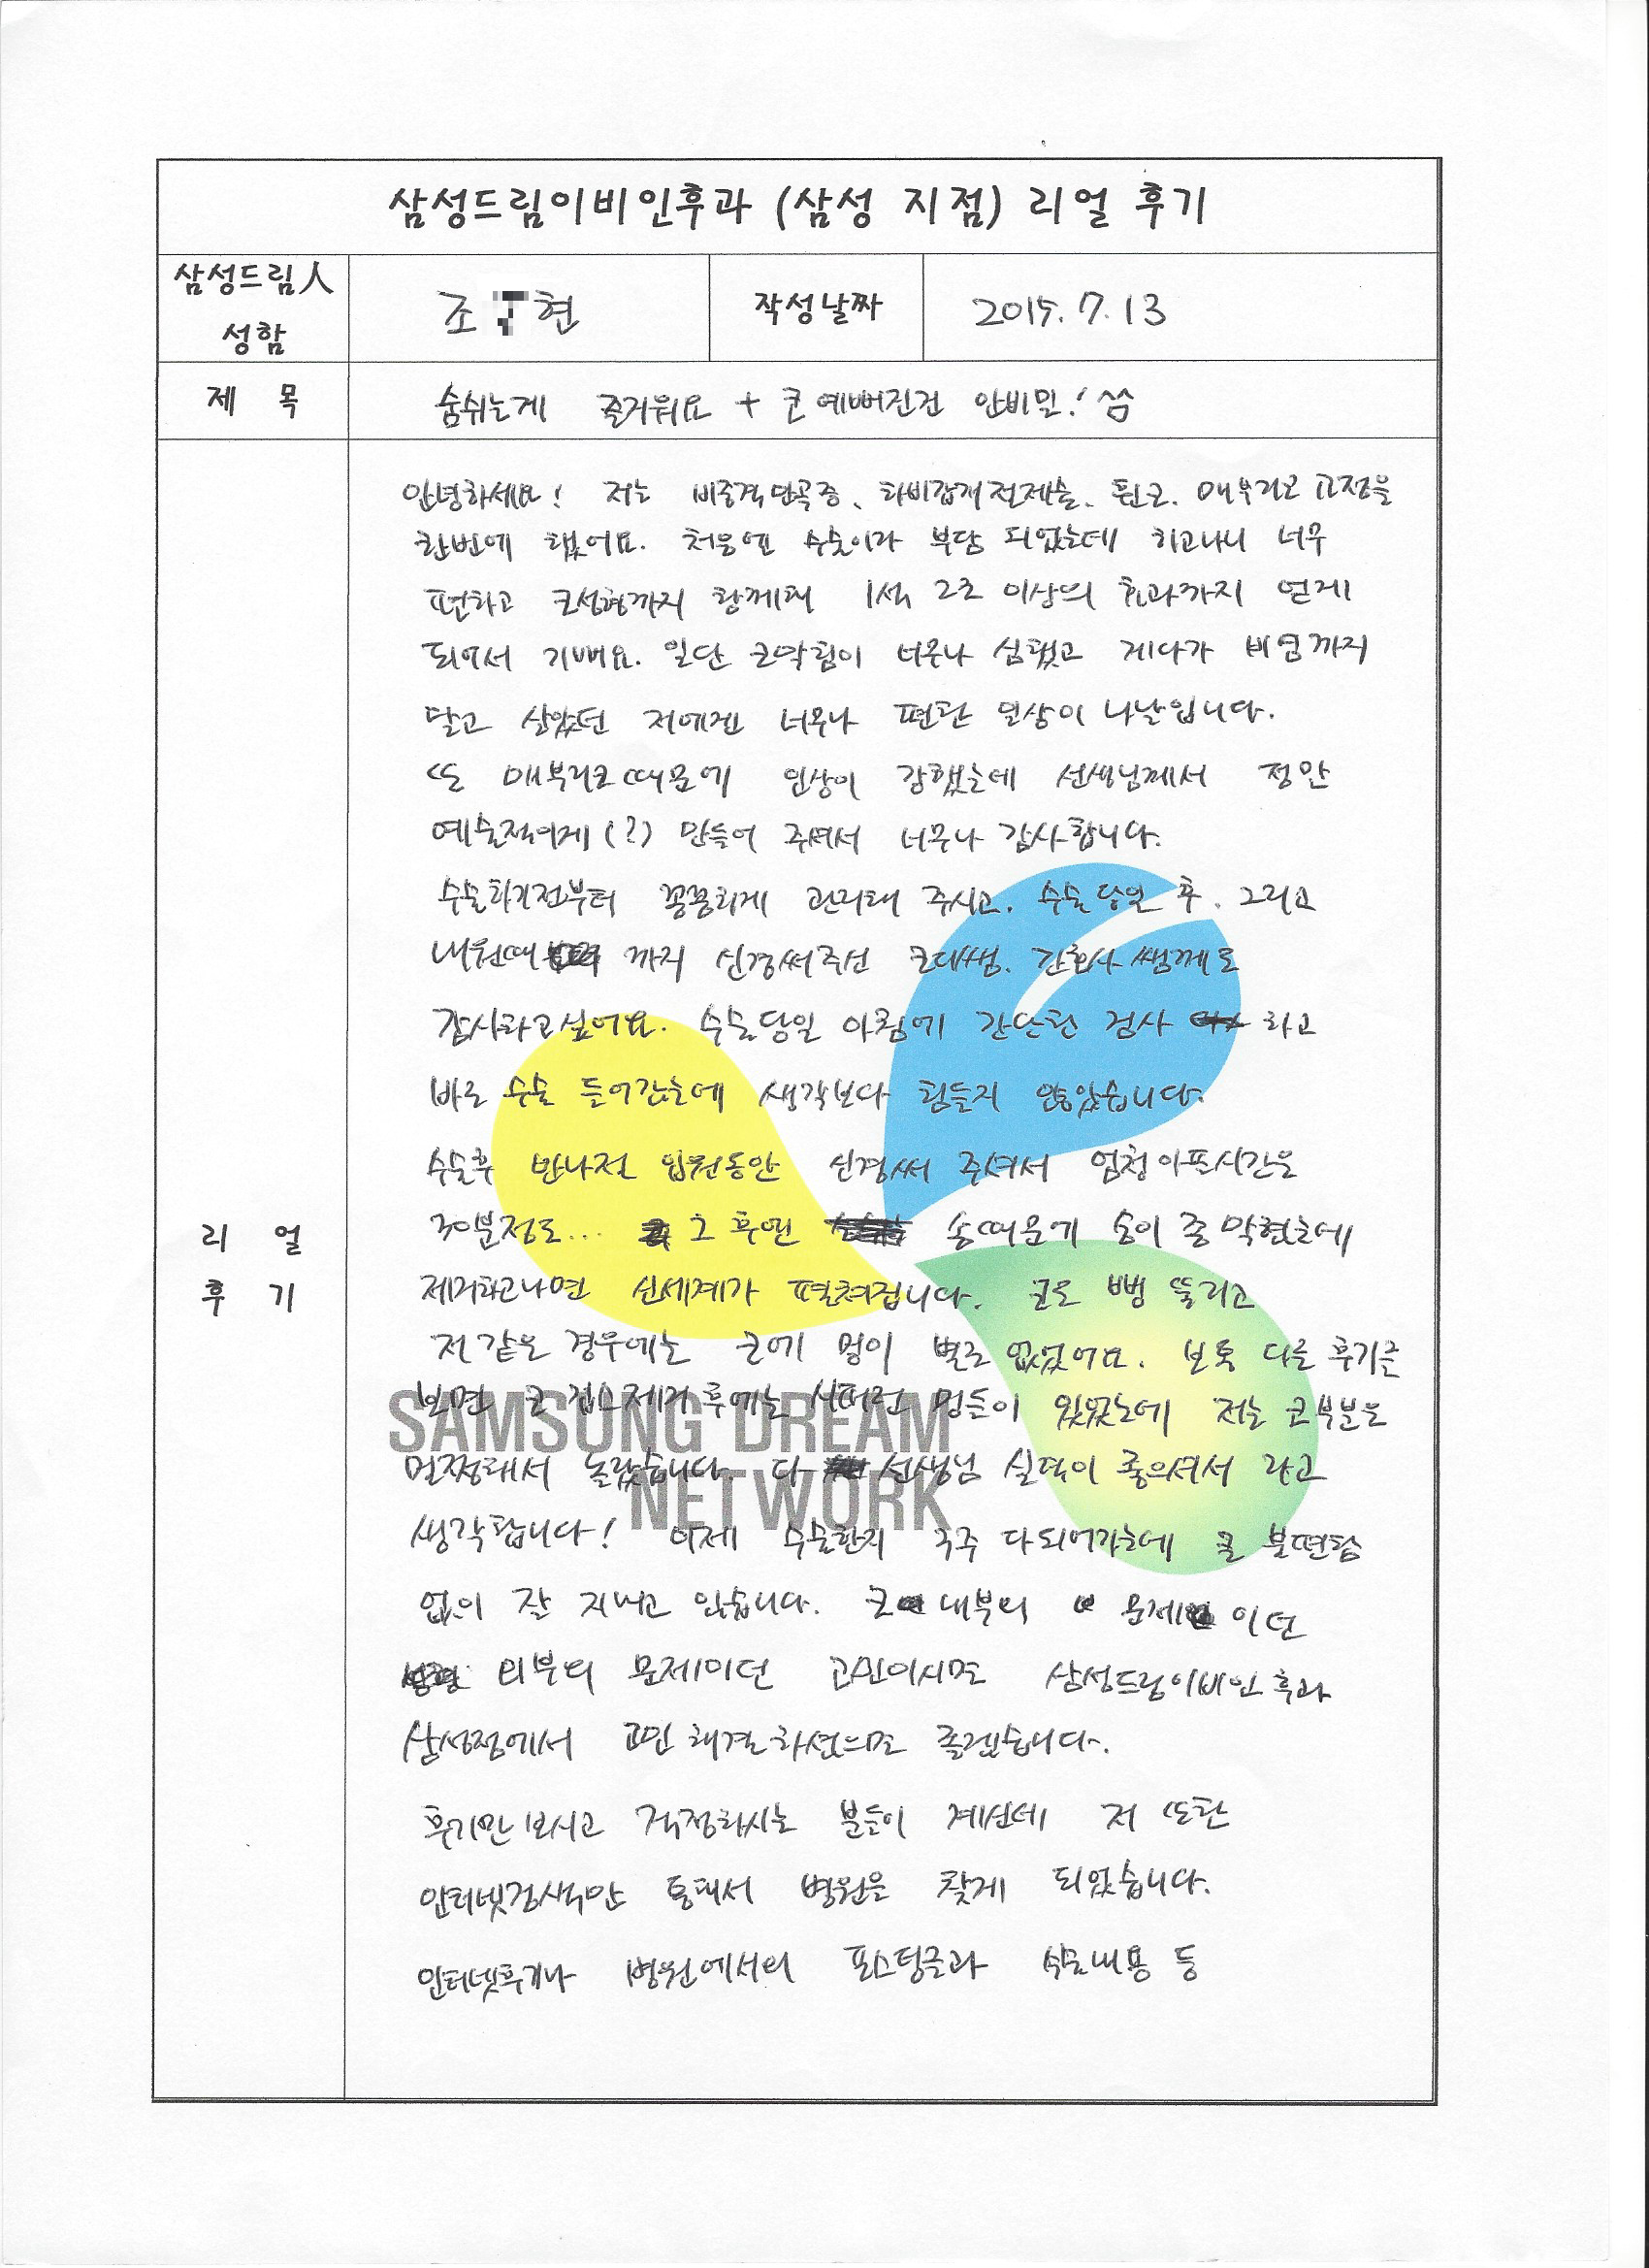 삼성드림이비인후과 (삼성 지점) 리얼 후기
삼성드림人
성함
조 현
작성날짜
2015. 7. 13
제 목
숨쉬는게 즐거워요 + 코 예뻐진건 안비밀! ^^
안녕하세요! 저는 비중격만곡증, 하비갑개절제술, 휜코, 매부리코 교정을
한번에 했어요. 처음엔 수술이라 부담 되었는데 하고나니 너무
편하고 코성형까지 함께해 1석 2조 이상의 효과까지 얻게
되어서 기뻐요. 일단 코막힘이 너무나 심했고 게다가 비염까지
달고 살았던 저에겐 너무나 편한 일상이 나날입니다.
또 매부리코때문에 인상이 강했는데 선생님께서 정말
예술적이게(?) 만들어 주셔서 너무나 감사합니다.
수술하기전부터 꼼꼼하게 관리해 주시고, 수술당일 후, 그리고
내원때 까지 신경써주신 코디쌤, 간호사 쌤께도
감사하고싶어요. 수술당일 아침에 간단한 검사 하고
바로 수술 들어갔는데 생각보다 힘들지 않았습니다.
수술후 반나절 입원동안 신경써 주셔서 엄청아픈시간은
30분정도... 그 후엔 솜때문에 숨이 좀 막혔는데
제거하고나면 신세계가 펼쳐집니다. 코도 뻥 뚫리고
저 같은 경우에는 코에 멍이 별로 없었어요. 보통 다른 후기를
보면 코 깁스제거 후에는 시퍼런 멍들이 있었는데 저는 코부분은
멀쩡해서 놀랐습니다. 다 선생님 실력이 좋으셔서 라고
생각합니다! 이제 수술한지 3주 다되어가는데 큰 불편함
없이 잘 지내고 있습니다. 코 내부의 문제 이던
외부의 문제이던 고민이시면 삼성드림이비인후과
삼성점에서 고민 해결하셨으면 좋겠습니다.
후기만 보시고 걱정하시는 분들이 계신데 저 또한
인터넷검색만 통해서 병원을 찾게 되었습니다.
인터넷후기나 병원에서의 포스팅글과 수술내용 등
리 얼
후 기
SAMSUNG DREAM
NETWORK